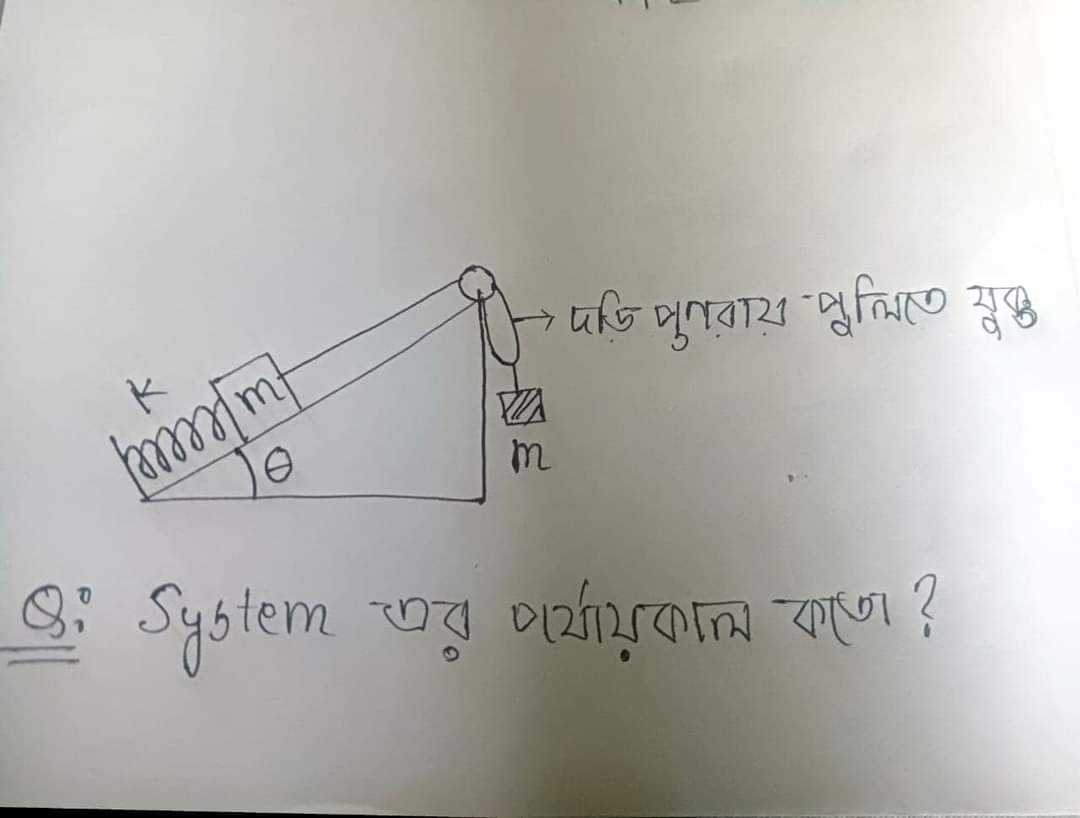 K
m
θ
→ দড়ি পুণরায় পুলিতে যুক্ত
m
Q: System এর পর্যায়কাল কতো?